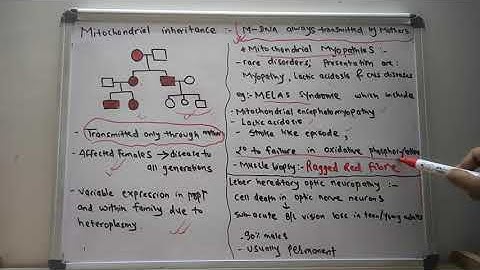 Mitochondrial inheritance :-
- Transmitted only through mother
- Affected females → disease to
all generations
- variable expression in
and within family due to
heteroplasmy.
M-DNA always transmitted by Mothers
* Mitochondrial myopathies :-
- rare disorders; presentation are:
Myopathy, Lactic acidosis & CNS diseases
eg:- MELAS syndrome which include
- Mitochondrial encephalomyopathy
- Lactic acidosis
- Stroke like episode,
2° to failure in oxidative phosphorylation
- Muscle biopsy:- Ragged Red Fibre
Leber hereditary optic neuropathy :-
cell death in optic nerve neurons
↓
subacute B/L vision loss in teen/young adults
- 90% males
- usually permanent